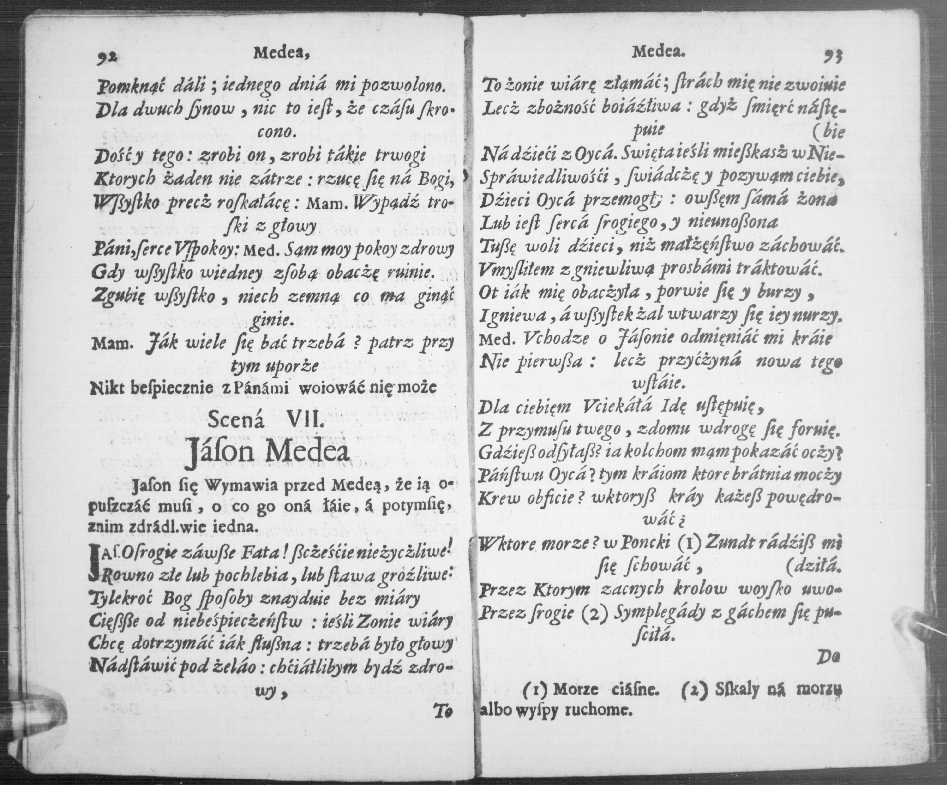 92 Medea,
Pomknąć dáli ; iednego dniá mi pozwolono.
Dla dwuch ſynow , nic to ieſt , że czáſu ſkro-
cono.
Dośćy tego : zrobi on , zrobi tákie trwogi
Ktorych żaden nie zátrze : rzucę ſię ná Bogi,
Wßyſtko precż roſkałácę : Mam. Wypądź tro-
ſki z głowy
Páni,ſerce Vſpokoy: Med. Sąm moy pokoy zdrowy
Gdy wßyſtko wiedney zſobą obacżę ruinie.
Zgubię wſßyſtko , niech zemną co ma ginąć
ginie.
Mam. Ják wiele ſię bać trzebá ? patrz przy
tym uporże
Nikt beſpiecznie z Pánámi woiowáć nię może
Scená VII.
Jáſon Medea
Jaſon ſię Wymawia przed Medeą, że ią o-
puſzczáć muſi , o co go oná łáie, á potymſię,
znim zdrádl.wie iedna.
JAſ.Oſrogie záwſße Fata ! ßcżeście nieżycżliwe!
Rowno złe lub pochlebia , lub ſtawa gróźliwe:
Tylekroć Bog ſpoſoby znayduie bez miáry
Cięßße od niebeśpiecżeńſtw : ieśli Zonie wiáry
Chcę dotrzymáć iák ſluſzna : trzebá było głowy
Nádſtáwić pod żeláo : chćiáłlibym bydź zdro-
wy ,
To
Medea. 93
To żonie wiárę złąmáć; ſtrách mię nie zwoiuie
Lecż zbożność boiáźliwa : gdyż śmierć náſtę-
puie (bie
Ná dźieći z Oycá. Swiętaieśli mießkasż w Nie-
Spráwiedliwośći , ſwiádcżę y pozywąm ciebie,
Dźieci Oycá przemogł; : owſßem ſámá żona
Lub ieſt ſercá ſrogiego , y nieunoßona
Tußę woli dźieci , niż małżęńſtwo záchowáć.
Vmyſliłem z gniewliwą prosbámi tráktowáć.
Ot iák mię obacżyła , porwie ſię y burzy ,
I gniewa , á wßyſtek żal wtwarzy ſię iey nurzy.
Med. Vchodze o Jáſonie odmięniáć mi kráie
Nie pierwſßa : lecż przyćżyná nowa tego
wſtáie.
Dla ciebięm Vciekáłá Idę uſtępuię,
Z przymuſu twego , zdomu wdrogę ſię foruię.
Gdźieß odſyłaſß? ia kolchom mąm pokazáć ocży?
Páńſtwu Oycá ? tym kráiom ktore brátnia mocży
Krew obficie ? wktoryß kráy każeß powędro-
wáć ?
Wktore morze ? w Poncki (1) Zundt rádźiß mi
ſię ſchowáć , (dziłá.
Przez Ktorym zacnych krolow woyſko uwo-
Przez ſrogie (2) Symplegády z gáchem ſię pu-
ſciłá.
Do
(1) Morze ciáſne. (2) Sſkaly ná morzu
albo wyſpy ruchome.